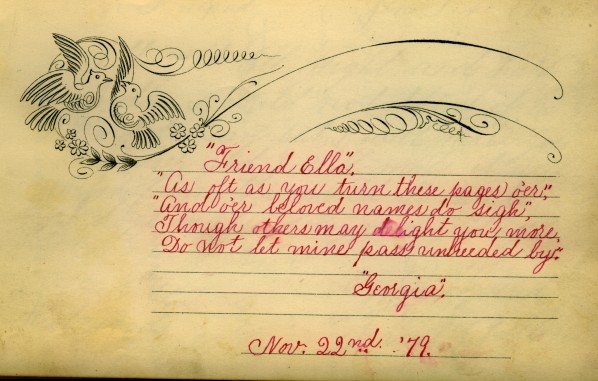 "Friend Ella".
"As oft as you turn these pages o'er",
"And o'er beloved names do sigh",
Though others may delight you more,
Do not let mine pass unheeded by".
"Georgia".
Nov. 22nd. '79.